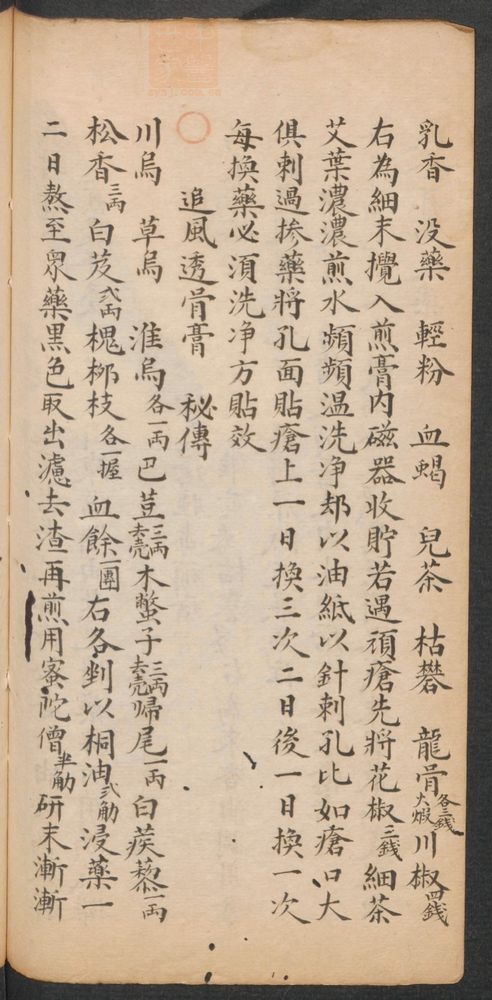 乳香　没藥　輕粉　血蝎　兒茶　枯礬　龍骨各三錢火煅川椒四錢
右為細末攪入煎膏内磁器收貯若遇頑瘡先將花椒三錢細茶
艾葉濃濃煎水頻頻温洗净却以油紙以針刺孔比如瘡口大
俱刺過摻藥將孔面貼瘡上一日換三次二日後一日換一次
每換藥必須洗净方貼效
○　追風透骨膏　秘傳
川烏　草烏　淮烏各一兩巴荳三兩去壳木鱉子三兩去壳帰尾一兩白蒺藜一兩
松香三兩白芨弍兩槐柳枝各一握血餘一團右各剉以桐油弍觔浸藥一
二日熬至衆藥黒色取出濾去渣再煎用蜜陀僧半觔研末漸漸